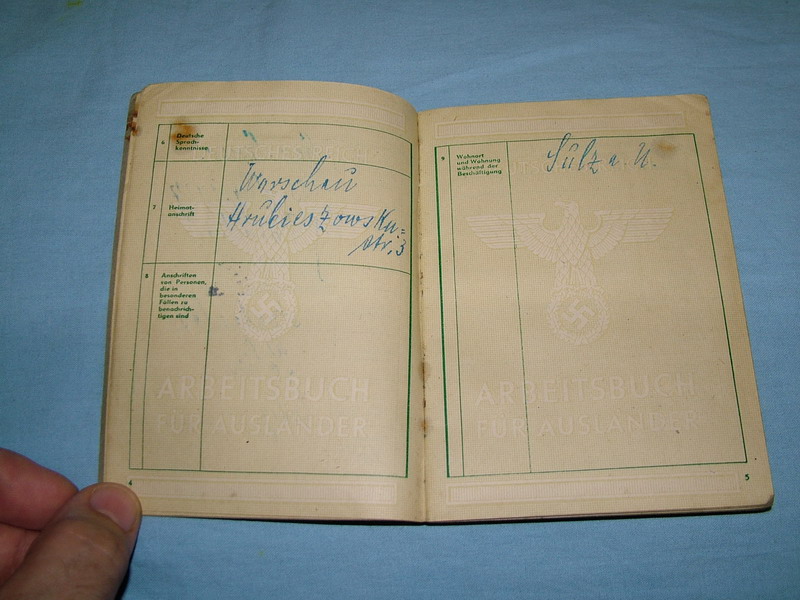 6 Deutsche
Sprach-
kenntnisse
DEUTSCHES RE
Warschau
7 Heimat-
anschrift
Hrubieszowska=
str. 3
8 Anschriften
von Personen,
die in
besonderen
Fällen zu
benachrich-
tigen sind
ARBEITSBUCH
FÜR AUSLÄNDER
4
9 Wohnort
und Wohnung
während der
Beschäftigung
Sulz a. N.
ARBEITSBUCH
FÜR AUSLÄNDER
5